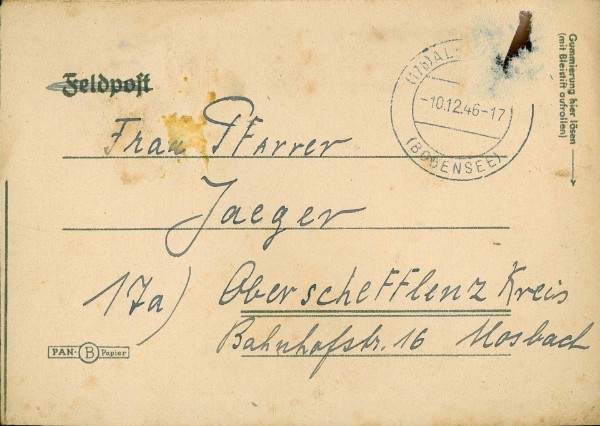 Feldpost
(17b) AL
-10.12.46-17
(BODENSEE)
Gummierung hier lösen
(mit Bleistift aufrollen)
Frau Pfarrer
Jaeger
17a) Oberschefflenz Kreis
Bahnhofstr. 16 Mosbach
PAN- B Papier